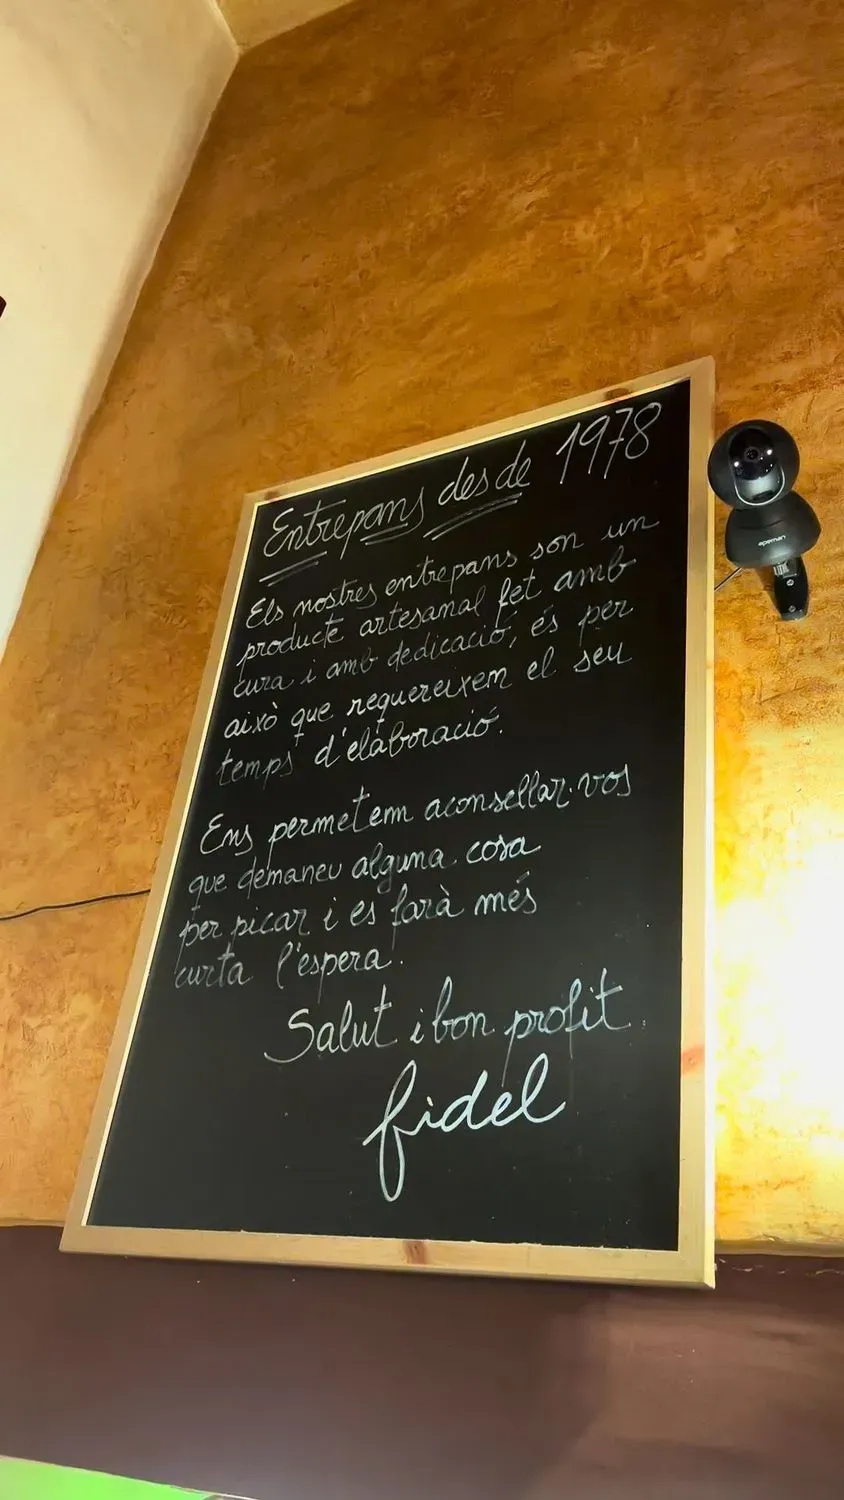 Entrepans desde 1978
Els nostres entrepans son un
producte artesanal fet amb
cura i amb dedicació, és per
això que requereixem el seu
temps d'elaboració.
Ens permetem aconsellar·vos
que demaneu alguna cosa
per picar i es farà més
curta l'espera.
Salut i bon profit.
fidel
apeman